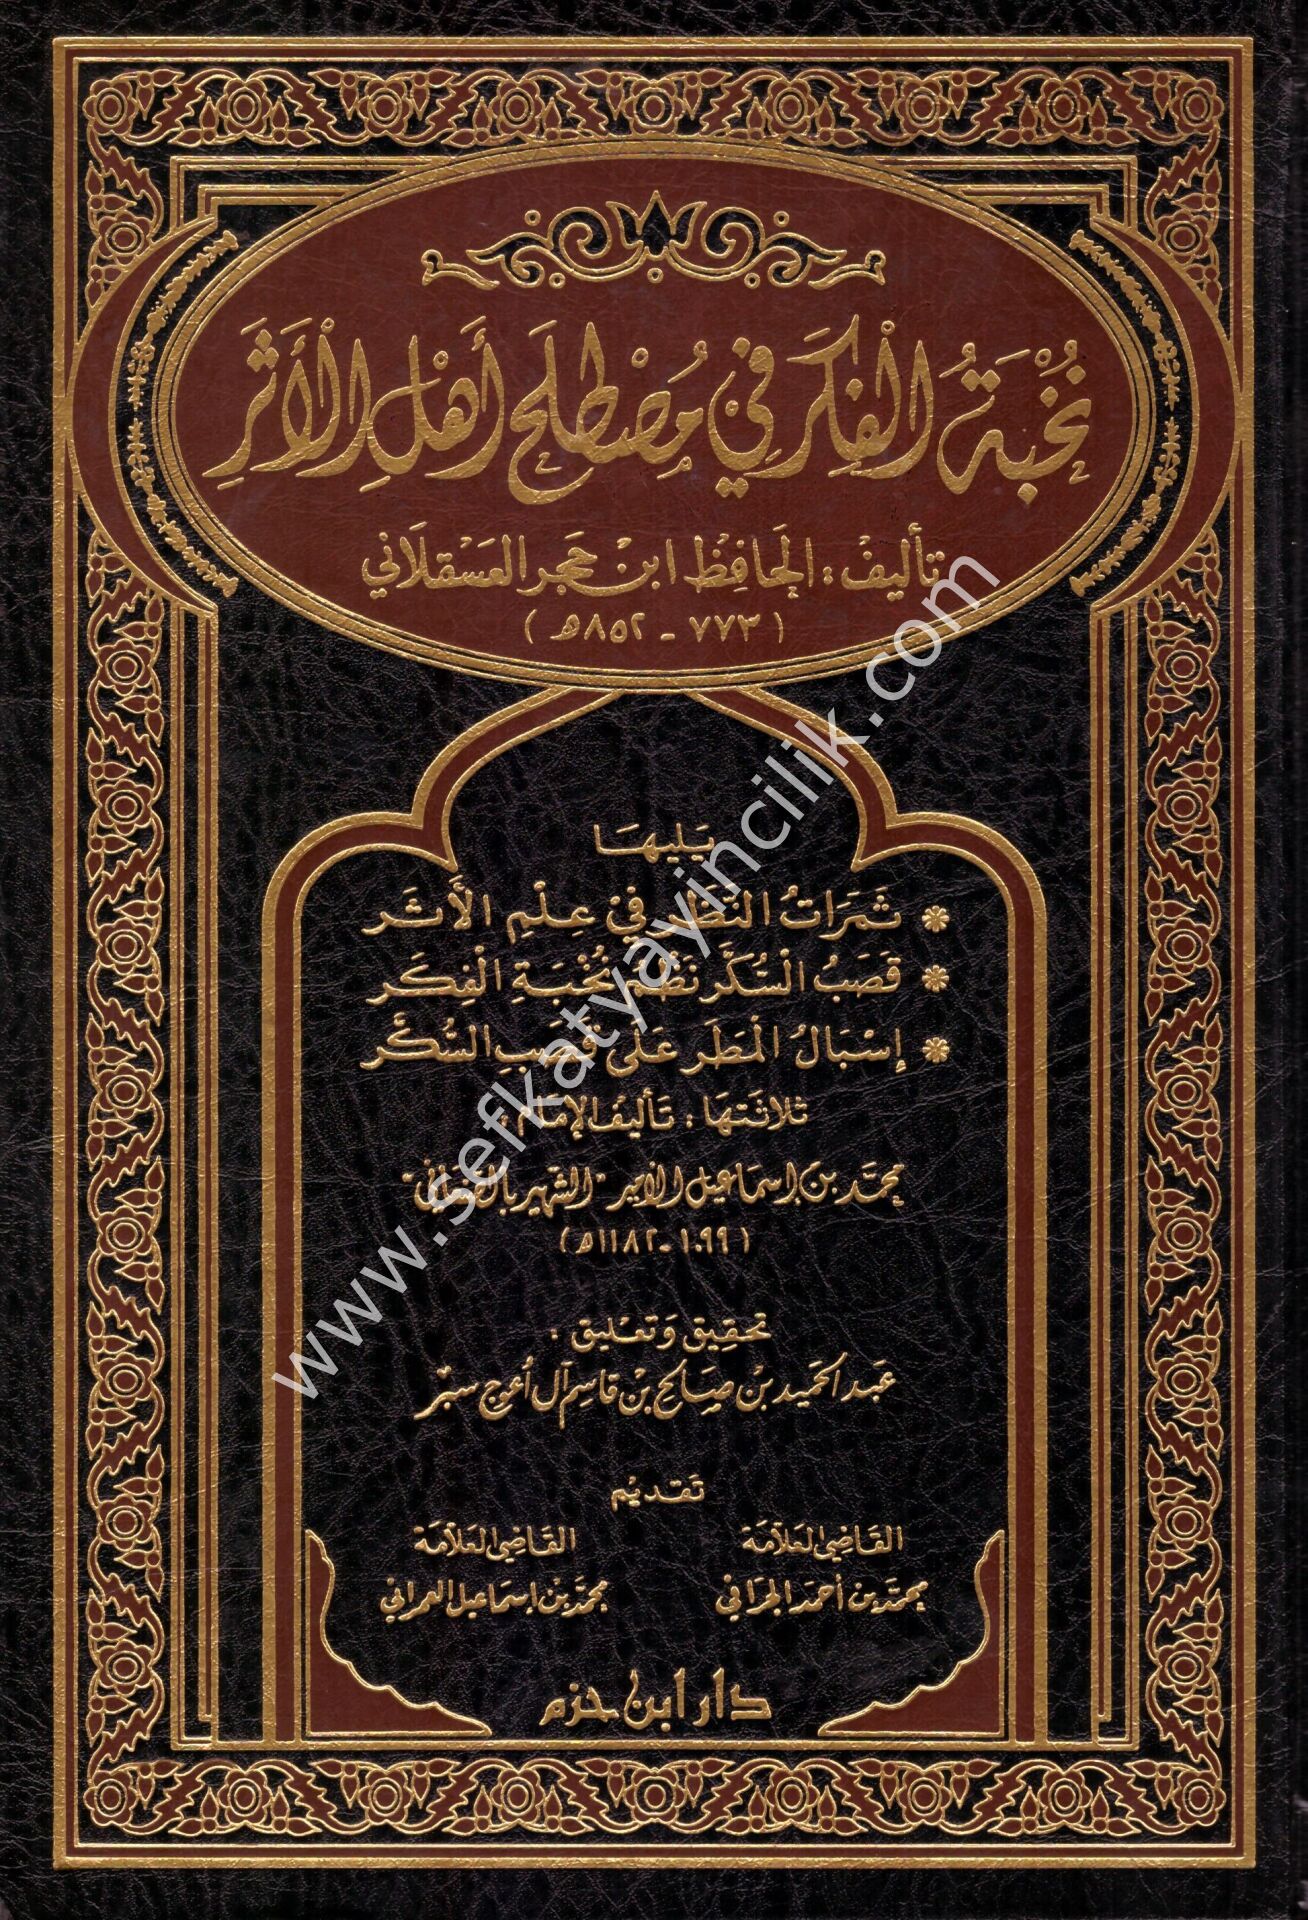 نُخْبَةُ الْفِكَرِ فِي مُصْطَلَحِ أَهْلِ الْأَثَرِ
تأليف: الحَافِظُ ابْنُ حَجَر العَسْقلَانِي
(٧٧٣ - ٨٥٢هـ)
يَليهَا
* ثَمَرَاتُ النَّظَرِ فِي عِلْمِ الأَثَر
* قَصَبُ السُّكَّر نَظْمُ نُخْبَةِ الْفِكَر
* إِسْبَالُ الْمَطَر عَلَى قَصَبِ السُّكَّر
ثلاثتها: تَأليفُ الإمَام:
محمّد بن إسماعيل الأمير "الشهير بالصنعاني"
(١٠٩٩ - ١١٨٢هـ)
تحقِيق وَتعْليق:
عَبد الحَميد بن صَالح بن قاسم آل أعوج سبر
تَقديْم
القَاضِي العَلّامَة
محمّد بن أحمد الجرافي
القَاضِي العَلّامَة
محمّد بن إسماعيل العمراني
دار ابن حزم
www.sefkatyayincilik.com